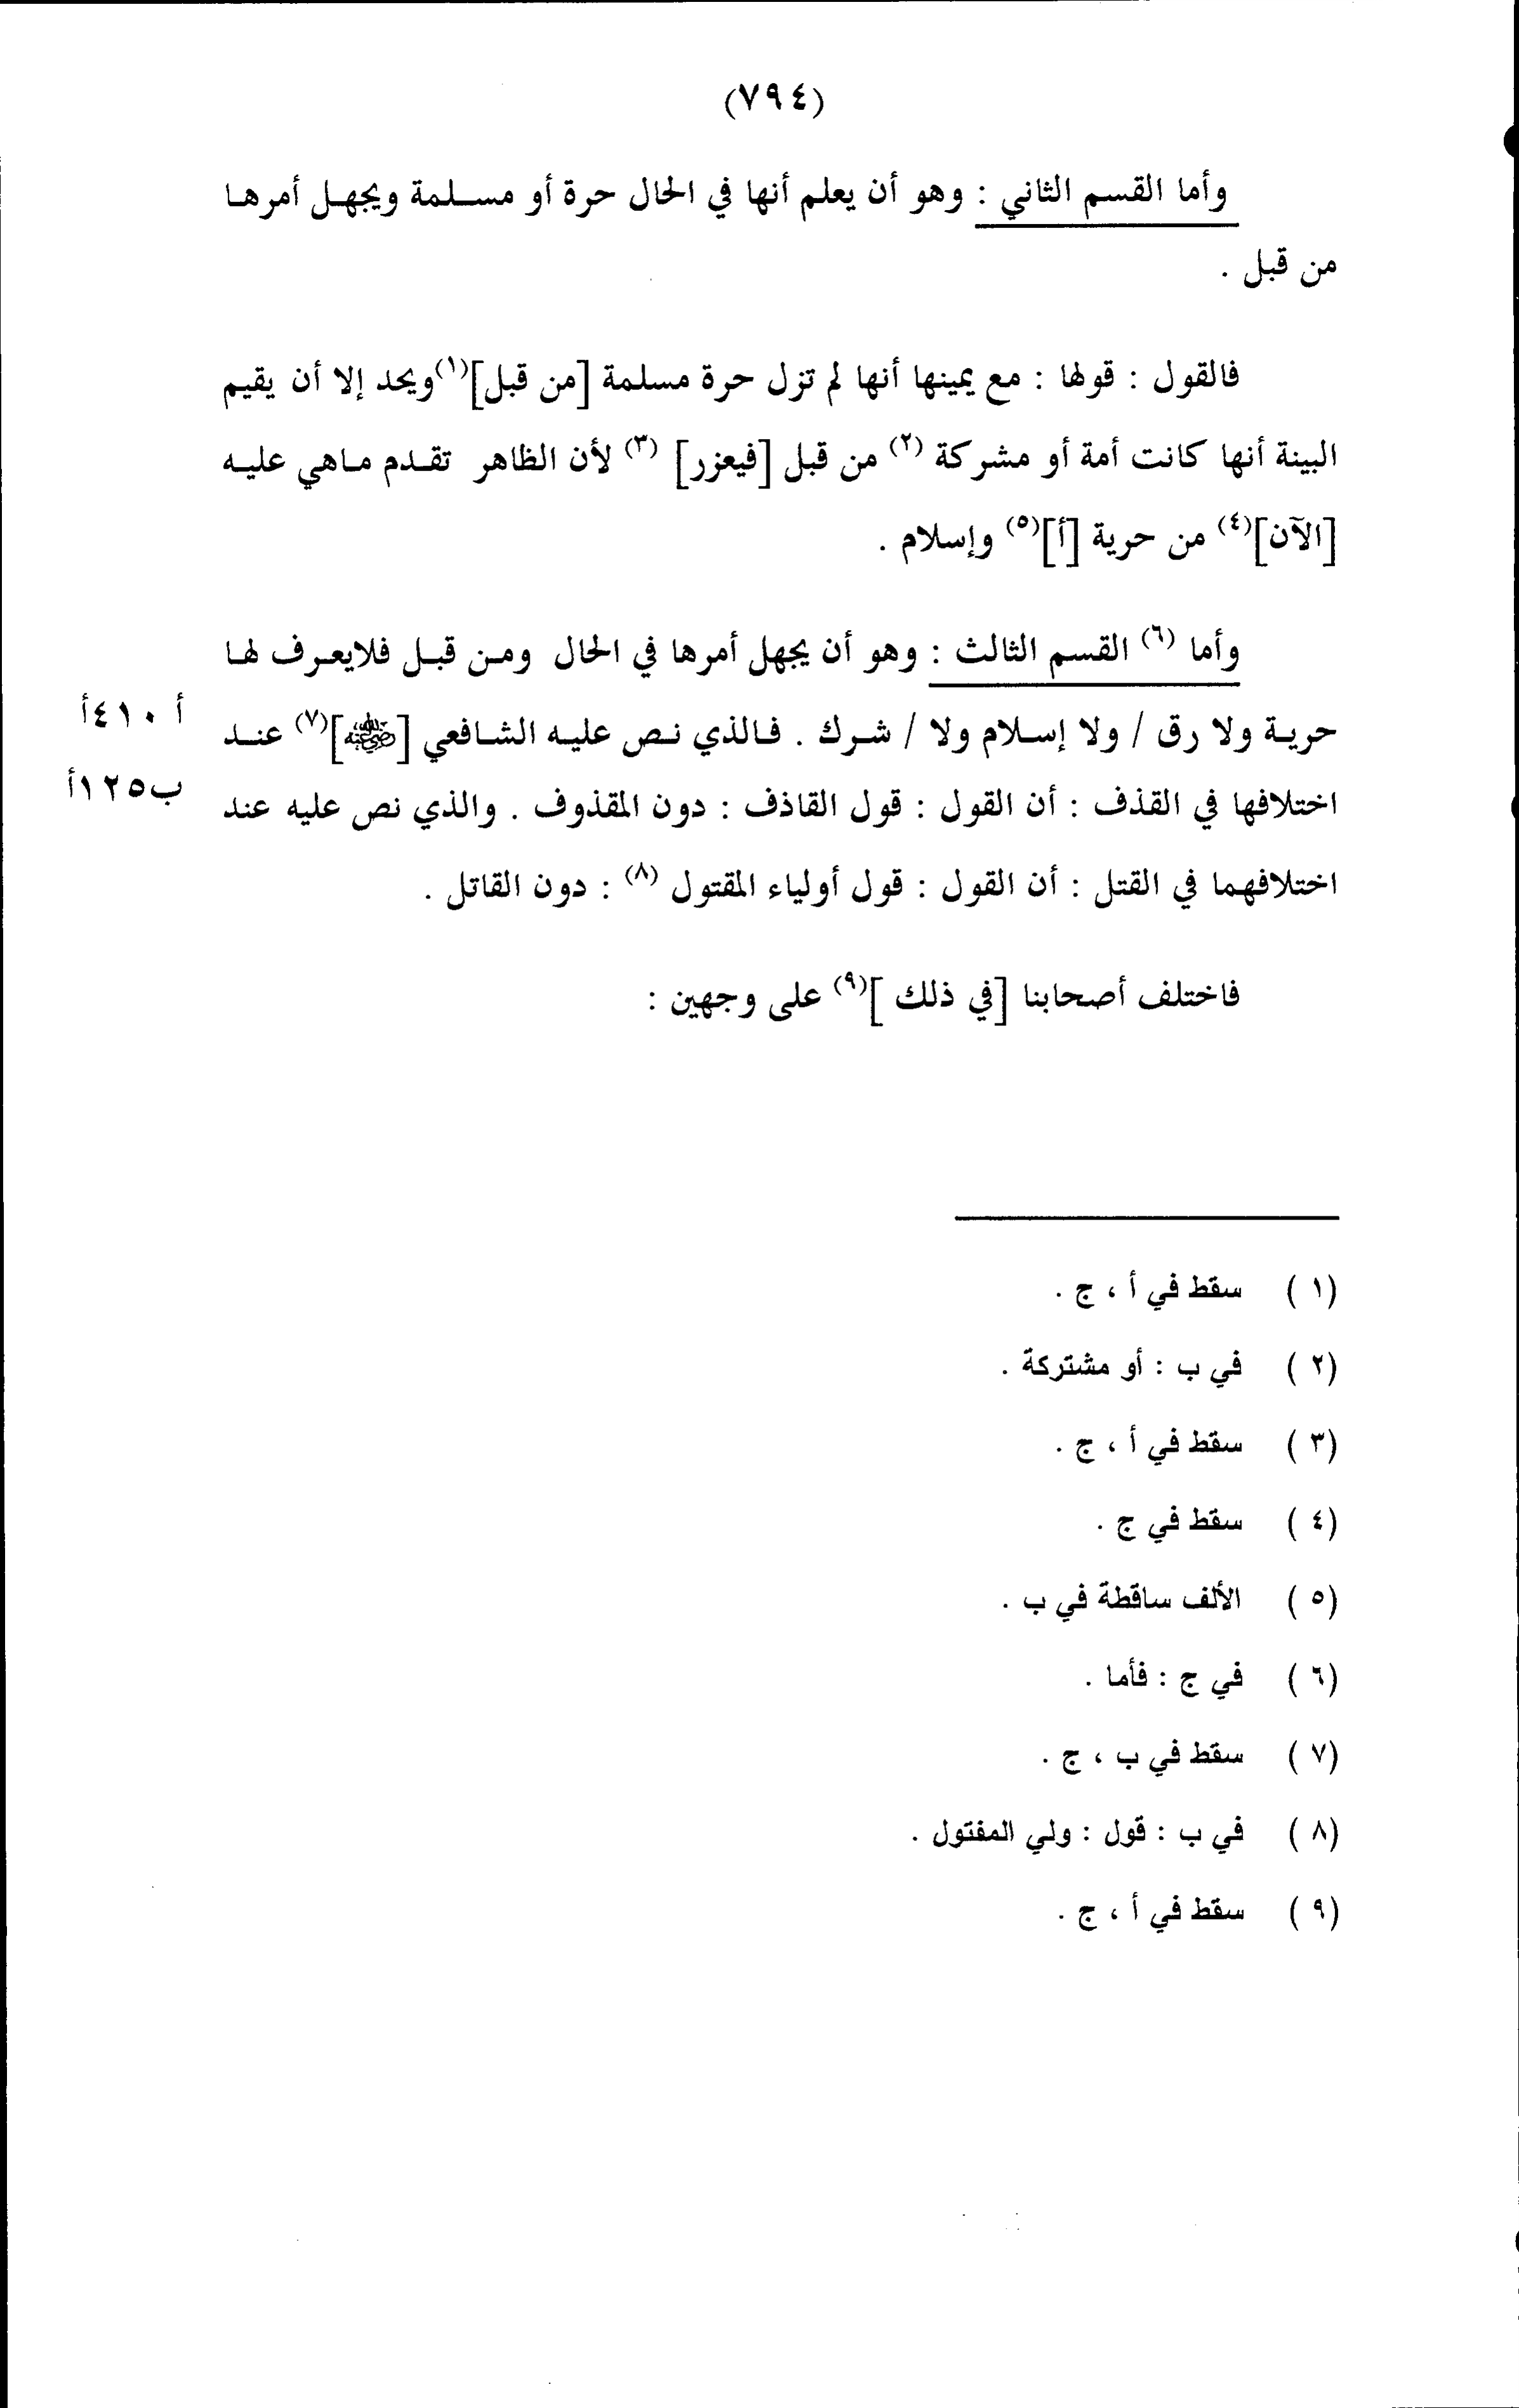 (٧٩٤)
وأما القسم الثاني : وهو أن يعلم أنها في الحال حرة أو مسلمة ويجهل أمرها
من قبل .
فالقول : قولها : مع يمينها أنها لم تزل حرة مسلمة [من قبل](١)ويحد إلا أن يقيم
البينة أنها كانت أمة أو مشركة (٢) من قبل [فيعزر] (٣) لأن الظاهر تقدم ماهي عليه
[الآن](٤) من حرية [أ](٥) وإسلام .
وأما (٦) القسم الثالث : وهو أن يجهل أمرها في الحال ومن قبل فلايعرف لها
حرية ولا رق / ولا إسلام ولا / شرك . فالذي نص عليه الشافعي [رضي الله عنه](٧) عند
أ ٤١٠أ
اختلافها في القذف : أن القول : قول القاذف : دون المقذوف . والذي نص عليه عند
ب١٢٥أ
اختلافهما في القتل : أن القول : قول أولياء المقتول (٨) : دون القاتل .
فاختلف أصحابنا [في ذلك ](٩) على وجهين :
(١) سقط في أ ، ج .
(٢) في ب : أو مشتركة .
(٣) سقط في أ ، ج .
(٤) سقط في ج .
(٥) الألف ساقطة في ب .
(٦) في ج : فأما .
(٧) سقط في ب ، ج .
(٨) في ب : قول : ولي المفتول .
(٩) سقط في أ ، ج .